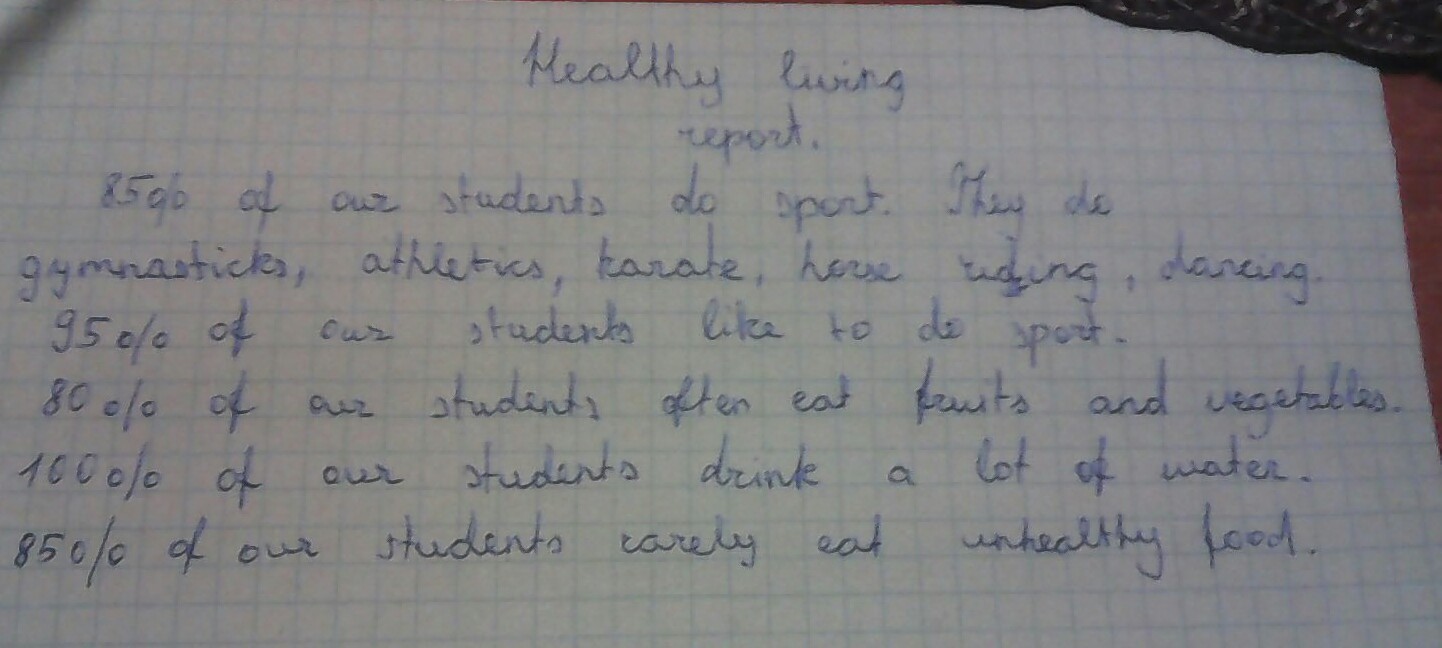 Healthy living
report.
85% of our students do sport. They do
gymnasticks, athletics, karate, horse riding, dancing.
95% of our students like to do sport.
80% of our students often eat fruits and vegetables.
100% of our students drink a lot of water.
85% of our students rarely eat unhealthy food.